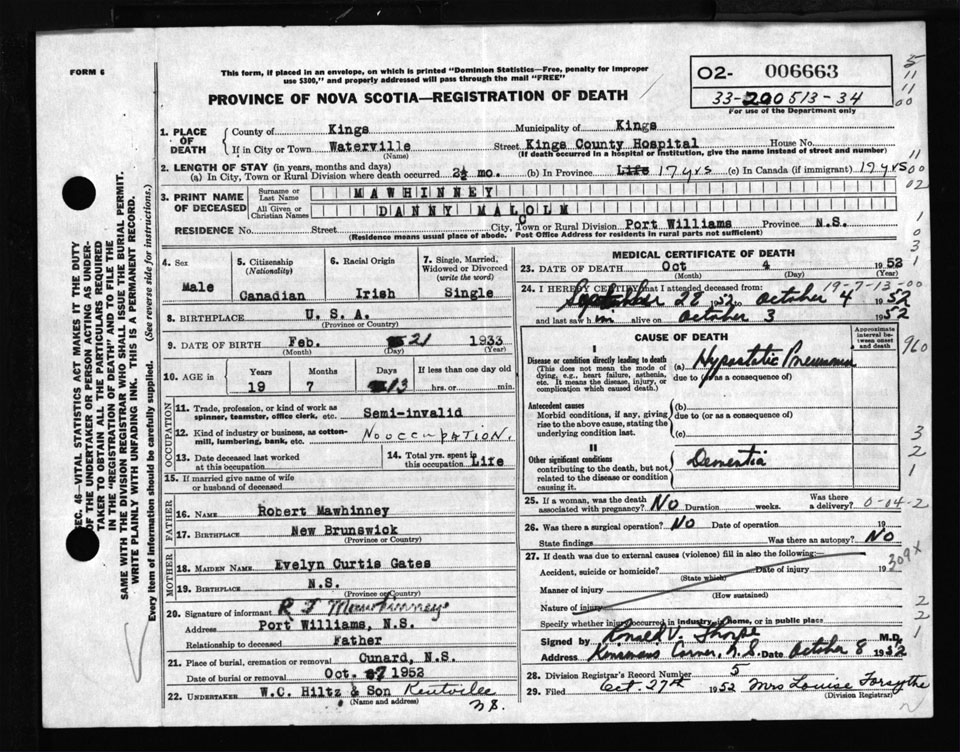 FORM 6
This form, if placed in an envelope, on which is printed "Dominion Statistics—Free, penalty for improper
use $300," and properly addressed will pass through the mail "FREE"
PROVINCE OF NOVA SCOTIA—REGISTRATION OF DEATH
02- 006663
33-200513-34
For use of the Department only
SEC. 46—VITAL STATISTICS ACT MAKES IT THE DUTY
OF THE UNDERTAKER OR PERSON ACTING AS UNDER-
TAKER TO OBTAIN ALL THE PARTICULARS REQUIRED
IN THE "REGISTRATION OF DEATH" AND TO FILE THE
SAME WITH THE DIVISION REGISTRAR WHO SHALL ISSUE THE BURIAL PERMIT.
WRITE PLAINLY WITH UNFADING INK. THIS IS A PERMANENT RECORD.
Every item of information should be carefully supplied. (See reverse side for instructions.)
1. PLACE OF DEATH
County of Kings Municipality of Kings
If in City or Town Waterville Street Kings County Hospital House No.
(Name) (If death occurred in a hospital or institution, give the name instead of street and number)
2. LENGTH OF STAY (in years, months and days)
(a) In City, Town or Rural Division where death occurred 2½ mo. (b) In Province Life 17 yrs (c) In Canada (if immigrant) 19 yrs
3. PRINT NAME OF DECEASED
Surname or Last Name MAWHINNEY
All Given or Christian Names DANNY MALCOLM
RESIDENCE No. Street City, Town or Rural Division Port Williams Province N.S.
(Residence means usual place of abode. Post Office Address for residents in rural parts not sufficient)
4. Sex
Male
5. Citizenship (Nationality)
Canadian
6. Racial Origin
Irish
7. Single, Married, Widowed or Divorced (write the word)
Single
8. BIRTHPLACE U. S. A.
(Province or Country)
9. DATE OF BIRTH Feb. 21 1933
(Month) (Day) (Year)
10. AGE in Years Months Days If less than one day old
19 7 13 hrs. or min.
OCCUPATION
11. Trade, profession, or kind of work as spinner, teamster, office clerk, etc. Semi-invalid
12. Kind of industry or business, as cotton-mill, lumbering, bank, etc. NO OCCUPATION.
13. Date deceased last worked at this occupation
14. Total yrs. spent in this occupation Life
15. If married give name of wife or husband of deceased
FATHER
16. NAME Robert Mawhinney
17. BIRTHPLACE New Brunswick
(Province or Country)
MOTHER
18. MAIDEN NAME Evelyn Curtis Gates
19. BIRTHPLACE N.S.
(Province or Country)
20. Signature of informant R J Mawhinney
Address Port Williams, N.S.
Relationship to deceased Father
21. Place of burial, cremation or removal Cunard, N.S.
Date of burial or removal Oct. 7 1952
22. UNDERTAKER W.C. Hiltz & Son Kentville
(Name and address) N.S.
MEDICAL CERTIFICATE OF DEATH
23. DATE OF DEATH Oct 4 1952
(Month) (Day) (Year)
19-7-13-00
24. I HEREBY CERTIFY that I attended deceased from:
September 28 1952 to October 4 1952
and last saw him alive on October 3 1952
CAUSE OF DEATH
Approximate interval between onset and death
I
Disease or condition directly leading to death
(This does not mean the mode of dying, e.g., heart failure, asthenia, etc. It means the disease, injury, or complication which caused death.)
(a) Hypostatic Pneumonia
due to (or as a consequence of)
Antecedent causes
Morbid conditions, if any, giving rise to the above cause, stating the underlying condition last.
(b)
due to (or as a consequence of)
(c)
II
Other significant conditions
contributing to the death, but not related to the disease or condition causing it.
Dementia
25. If a woman, was the death associated with pregnancy? NO Duration weeks. Was there a delivery? 0-04-2
26. Was there a surgical operation? NO Date of operation 19
State findings Was there an autopsy? NO
27. If death was due to external causes (violence) fill in also the following:
Accident, suicide or homicide? Date of injury 19
(State which)
Manner of injury
(How sustained)
Nature of injury
Specify whether injury occurred in industry, in home, or in public place
Signed by Ronald V. Thorpe M.D.
Address Kinsmans Corner, N.S. Date October 8 1952
28. Division Registrar's Record Number 5
29. Filed Oct. 27th 1952 Mrs Louise Forsythe
(Division Registrar)
960
309x